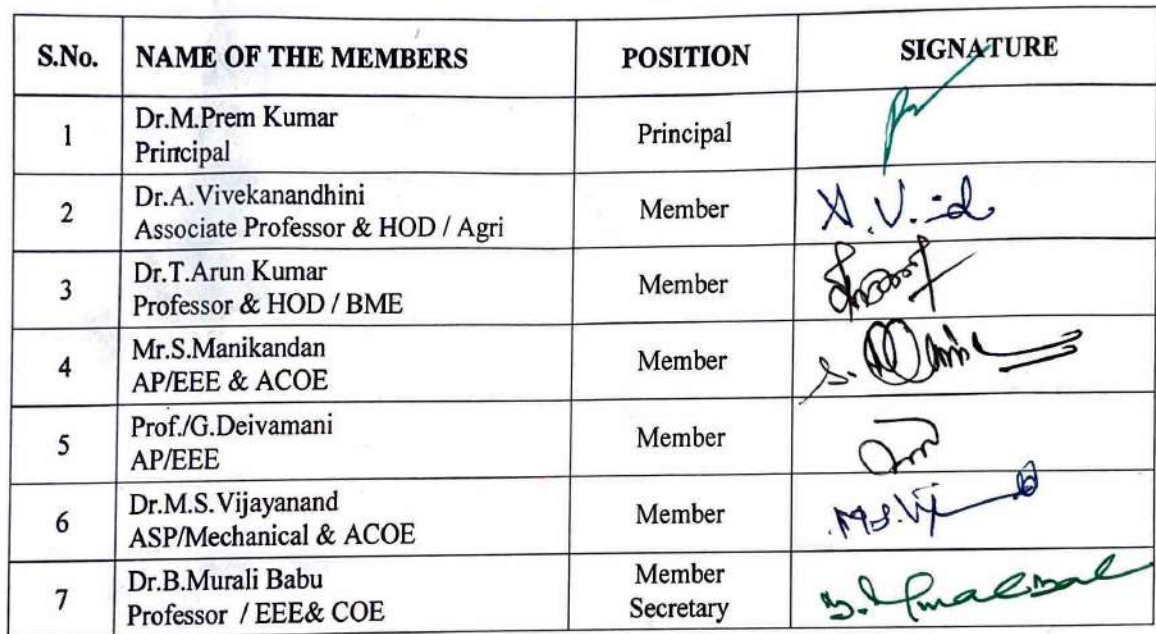 S.No. NAME OF THE MEMBERS POSITION SIGNATURE
1 Dr.M.Prem Kumar
Principal Principal
2 Dr.A.Vivekanandhini
Associate Professor & HOD / Agri Member A.V
3 Dr.T.Arun Kumar
Professor & HOD / BME Member
4 Mr.S.Manikandan
AP/EEE & ACOE Member
5 Prof./G.Deivamani
AP/EEE Member
6 Dr.M.S.Vijayanand
ASP/Mechanical & ACOE Member M.S.Vij
7 Dr.B.Murali Babu
Professor / EEE& COE Member
Secretary